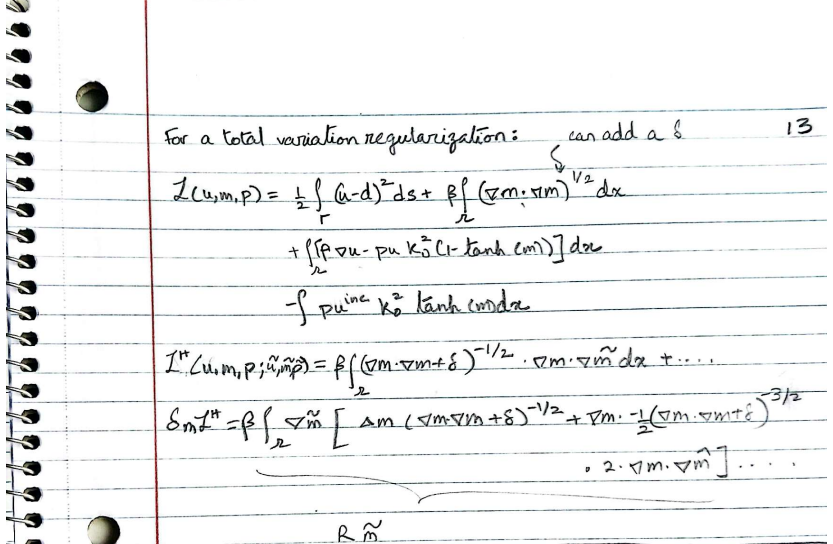 For a total variation regularization: can add a δ 13
L(u,m,p) = ½ ∫_Γ (u-d)² ds + β ∫_Ω (∇m·∇m)^{1/2} dx
+ ∫_Ω [∇p ∇u - pu k₀² (1- tanh (m))] dx
-∫ pu^{inc} k₀² tanh (m) dx
L^H (u,m,p; ũ,m̃,p̃) = β ∫_Ω (∇m·∇m+δ)^{-1/2} · ∇m·∇m̃ dx + ....
δ_m L^H = β ∫_Ω ∇m̃ [ Δm (∇m·∇m+δ)^{-1/2} + ∇m· -½ (∇m·∇m+δ)^{-3/2}
· 2·∇m·∇m̂ ] ....
R m̃